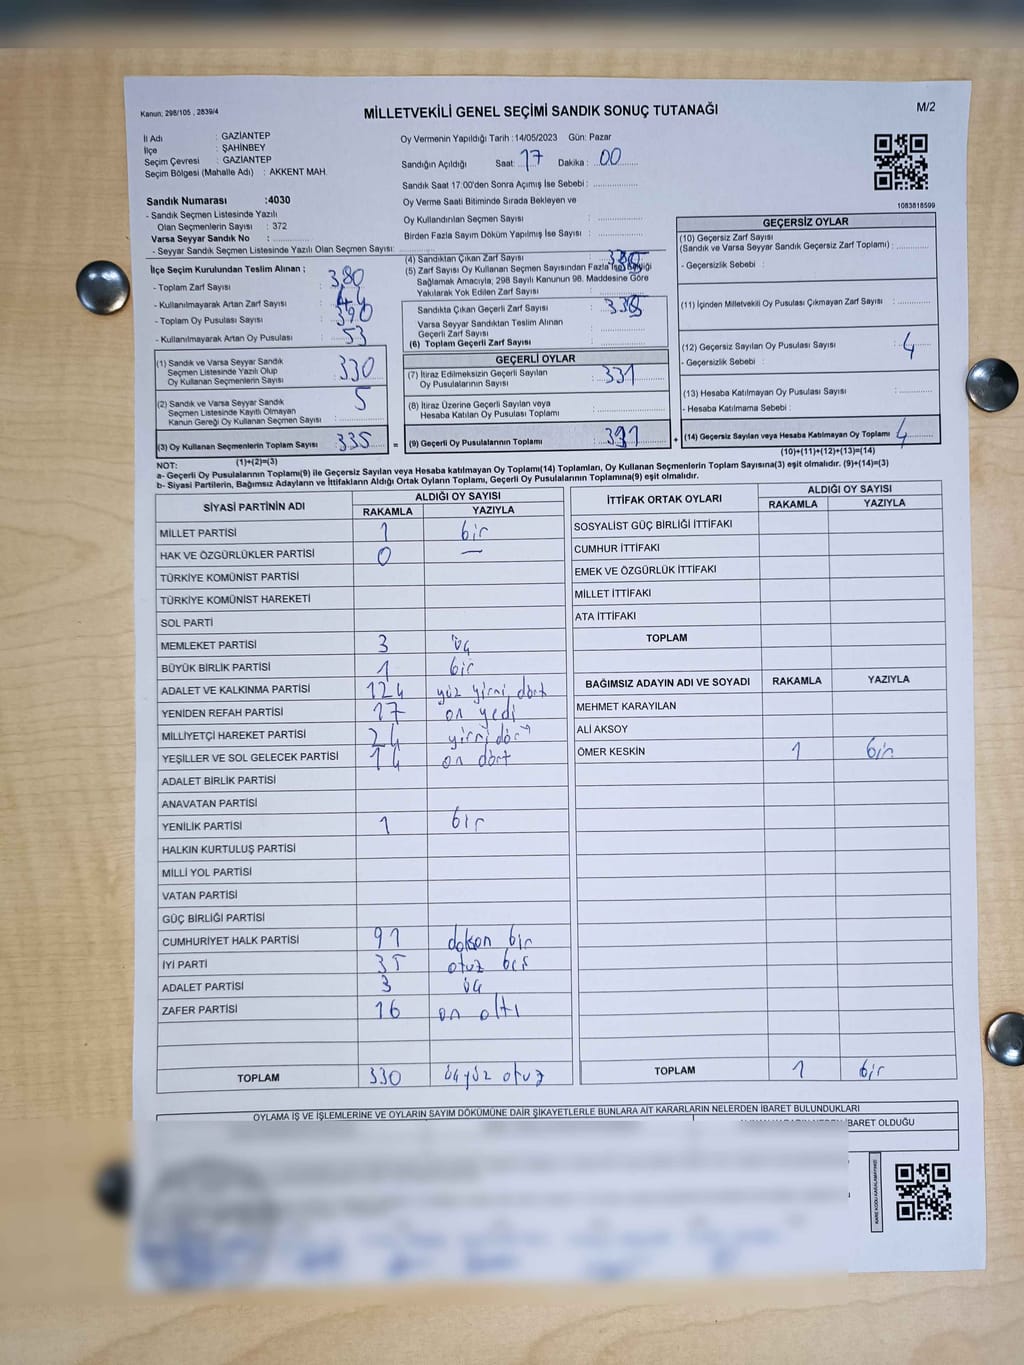 Kanun: 298/105 , 2839/4
MİLLETVEKİLİ GENEL SEÇİMİ SANDIK SONUÇ TUTANAĞI
M/2
İl Adı : GAZİANTEP
İlçe : ŞAHİNBEY
Seçim Çevresi : GAZİANTEP
Seçim Bölgesi (Mahalle Adı) : AKKENT MAH.
Sandık Numarası :4030
- Sandık Seçmen Listesinde Yazılı
Olan Seçmenlerin Sayısı : 372
Varsa Seyyar Sandık No :
- Seyyar Sandık Seçmen Listesinde Yazılı Olan Seçmen Sayısı:
Oy Vermenin Yapıldığı Tarih :14/05/2023 Gün: Pazar
Sandığın Açıldığı Saat: 17 Dakika : 00
Sandık Saat 17:00'den Sonra Açımış İse Sebebi :
Oy Verme Saati Bitiminde Sırada Bekleyen ve
Oy Kullandırılan Seçmen Sayısı :
Birden Fazla Sayım Döküm Yapılmış İse Sayısı :
1083818599
İlçe Seçim Kurulundan Teslim Alınan ;
- Toplam Zarf Sayısı : 380
- Kullanılmayarak Artan Zarf Sayısı : 44
- Toplam Oy Pusulası Sayısı : 390
- Kullanılmayarak Artan Oy Pusulası : 53
(1) Sandık ve Varsa Seyyar Sandık
Seçmen Listesinde Yazılı Olup
Oy Kullanan Seçmenlerin Sayısı : 330
(2) Sandık ve Varsa Seyyar Sandık
Seçmen Listesinde Kayıtlı Olmayan
Kanun Gereği Oy Kullanan Seçmen Sayısı : 5
(3) Oy Kullanan Seçmenlerin Toplam Sayısı : 335 =
(1)+(2)=(3)
(4) Sandıktan Çıkan Zarf Sayısı :
(5) Zarf Sayısı Oy Kullanan Seçmen Sayısından Fazla İse Eşitliği
Sağlamak Amacıyla; 298 Sayılı Kanunun 98. Maddesine Göre
Yakılarak Yok Edilen Zarf Sayısı :
Sandıkta Çıkan Geçerli Zarf Sayısı :
Varsa Seyyar Sandıktan Teslim Alınan
Geçerli Zarf Sayısı :
(6) Toplam Geçerli Zarf Sayısı :
GEÇERLİ OYLAR
(7) İtiraz Edilmeksizin Geçerli Sayılan
Oy Pusulalarının Sayısı : 331
(8) İtiraz Üzerine Geçerli Sayılan veya
Hesaba Katılan Oy Pusulası Toplamı :
(9) Geçerli Oy Pusulalarının Toplamı : 331 +
GEÇERSİZ OYLAR
(10) Geçersiz Zarf Sayısı
(Sandık ve Varsa Seyyar Sandık Geçersiz Zarf Toplamı) :
- Geçersizlik Sebebi :
(11) İçinden Milletvekili Oy Pusulası Çıkmayan Zarf Sayısı :
(12) Geçersiz Sayılan Oy Pusulası Sayısı : 4
- Geçersizlik Sebebi :
(13) Hesaba Katılmayan Oy Pusulası Sayısı :
- Hesaba Katılmama Sebebi :
(14) Geçersiz Sayılan veya Hesaba Katılmayan Oy Toplamı : 4
(10)+(11)+(12)+(13)=(14)
NOT:
a- Geçerli Oy Pusulalarının Toplamı(9) ile Geçersiz Sayılan veya Hesaba katılmayan Oy Toplamı(14) Toplamları, Oy Kullanan Seçmenlerin Toplam Sayısına(3) eşit olmalıdır. (9)+(14)=(3)
b- Siyasi Partilerin, Bağımsız Adayların ve İttifakların Aldığı Ortak Oyların Toplamı, Geçerli Oy Pusulalarının Toplamına(9) eşit olmalıdır.
SİYASİ PARTİNİN ADI ALDIĞI OY SAYISI
RAKAMLA YAZIYLA
MİLLET PARTİSİ 1 bir
HAK VE ÖZGÜRLÜKLER PARTİSİ 0 —
TÜRKİYE KOMÜNİST PARTİSİ
TÜRKİYE KOMÜNİST HAREKETİ
SOL PARTİ
MEMLEKET PARTİSİ 3 üç
BÜYÜK BİRLİK PARTİSİ 1 bir
ADALET VE KALKINMA PARTİSİ 124 yüz yirmi dört
YENİDEN REFAH PARTİSİ 17 on yedi
MİLLİYETÇİ HAREKET PARTİSİ 24 yirmi dört
YEŞİLLER VE SOL GELECEK PARTİSİ 14 on dört
ADALET BİRLİK PARTİSİ
ANAVATAN PARTİSİ
YENİLİK PARTİSİ 1 bir
HALKIN KURTULUŞ PARTİSİ
MİLLİ YOL PARTİSİ
VATAN PARTİSİ
GÜÇ BİRLİĞİ PARTİSİ
CUMHURİYET HALK PARTİSİ 91 doksan bir
İYİ PARTİ 35 otuz beş
ADALET PARTİSİ 3 üç
ZAFER PARTİSİ 16 on altı
TOPLAM 330 üçyüz otuz
İTTİFAK ORTAK OYLARI ALDIĞI OY SAYISI
RAKAMLA YAZIYLA
SOSYALİST GÜÇ BİRLİĞİ İTTİFAKI
CUMHUR İTTİFAKI
EMEK VE ÖZGÜRLÜK İTTİFAKI
MİLLET İTTİFAKI
ATA İTTİFAKI
TOPLAM
BAĞIMSIZ ADAYIN ADI VE SOYADI RAKAMLA YAZIYLA
MEHMET KARAYILAN
ALİ AKSOY
ÖMER KESKİN 1 bir
TOPLAM 1 bir
OYLAMA İŞ VE İŞLEMLERİNE VE OYLARIN SAYIM DÖKÜMÜNE DAİR ŞİKAYETLERLE BUNLARA AİT KARARLARIN NELERDEN İBARET BULUNDUKLARI
İBARET OLDUĞU
KARE KODU KARALAMAYINIZ!